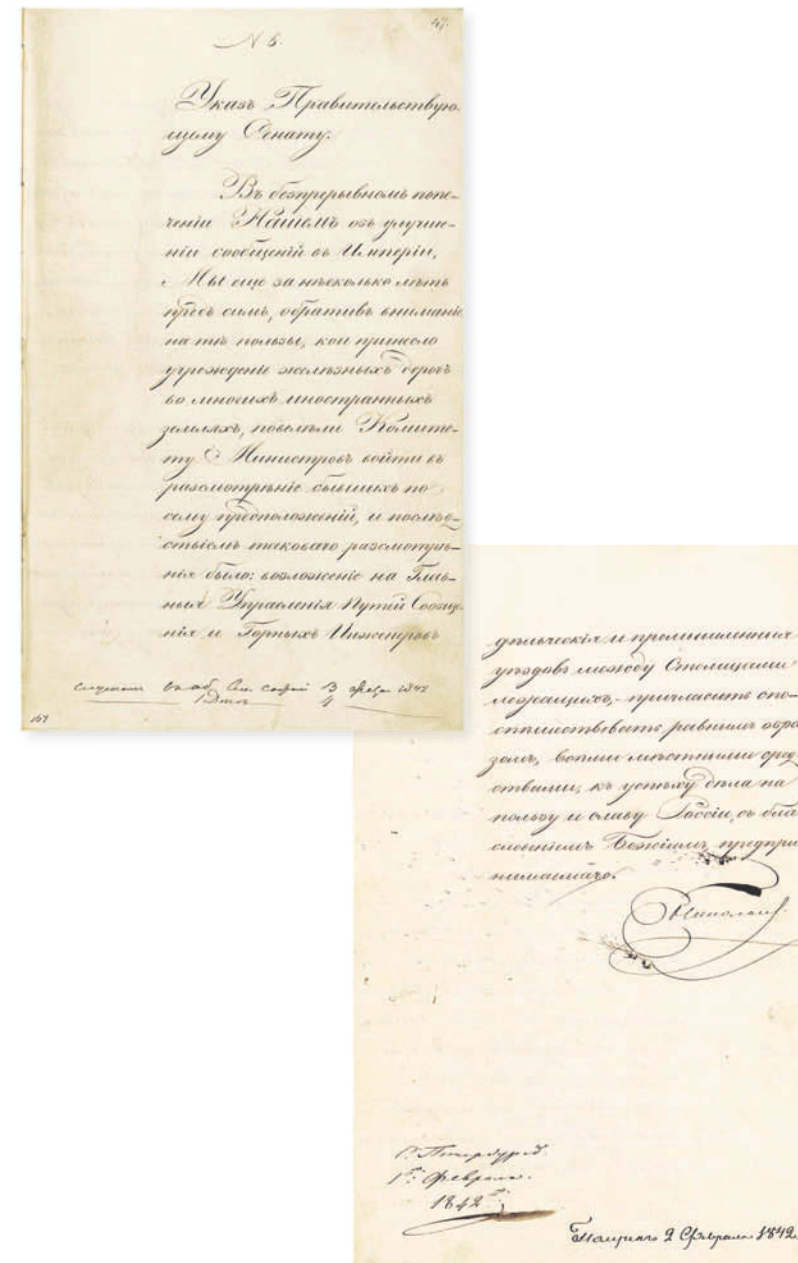 47.
N 5.
Указъ Правительствую-
щему Сенату.
Въ безпрерывномъ попе-
ченіи Нашемъ объ улучше-
ніи сообщеній въ Имперіи,
Мы еще за нѣсколько лѣтъ
предъ симъ, обративъ вниманіе
на тѣ пользы, кои принесло
учрежденіе желѣзныхъ дорогъ
во многихъ иностранныхъ
земляхъ, повелѣли Комите-
ту Министровъ войти въ
разсмотрѣніе бывшихъ по
сему предположеній, и послѣд-
ствіемъ таковаго разсмотрѣ-
нія было: возложеніе на Глав-
ныя Управленія Путей Сообще-
нія и Горныхъ Инженеровъ
3 1842
4
167
дѣльческія и промышленныя
уѣздовъ между Столицами
лежащихъ, - пригласить спо-
спѣшествовать равнымъ обра
зомъ, всѣми мѣстными сред
ствами, къ успѣху дѣла на
пользу и славу Россіи, съ бла
словеніемъ Божіимъ, предпри
нимаемаго.
Николай.
С. Петербургъ.
1го Февраля.
1842го
2 Февраля 1842